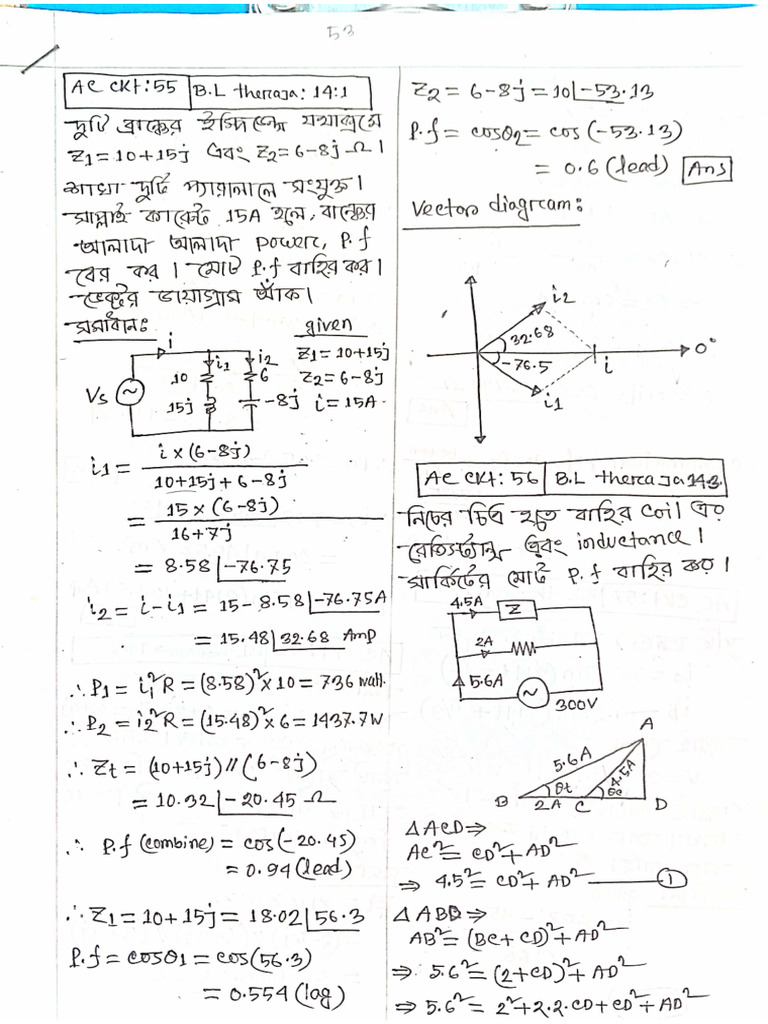 53
AC CKt: 55 B.L theraja: 14:1
দুটি ব্রাঞ্চের ইম্পিডেন্স যথাক্রমে
Z1 = 10+15j এবং Z2 = 6-8j Ω ।
শাখা দুটি প্যারালালে সংযুক্ত।
সাপ্লাই কারেন্ট 15A হলে, ব্রাঞ্চের
আলাদা আলাদা power, P.f
বের কর । মোট P.f বাহির কর।
ভেক্টর ডায়াগ্রাম আঁক।
সমাধান:
given
Z1 = 10+15j
Z2 = 6-8j
i = 15A
i
i1
i2
10
6
15j
-8j
Vs
i1 = i × (6-8j) / 10+15j+6-8j
= 15 × (6-8j) / 16+7j
= 8.58 |-76.75
i2 = i-i1 = 15 - 8.58 |-76.75A
= 15.48 |32.68 Amp
∴ P1 = i1² R = (8.58)² × 10 = 736 watt.
∴ P2 = i2² R = (15.48)² × 6 = 1437.7W
∴ Zt = (10+15j) // (6-8j)
= 10.32 |-20.45 Ω
∴ P.f (combine) = cos(-20.45)
= 0.94 (lead)
∴ Z1 = 10+15j = 18.02 |56.3
P.f = cosθ1 = cos(56.3)
= 0.554 (lag)
Z2 = 6-8j = 10 |-53.13
P.f = cosθ2 = cos (-53.13)
= 0.6 (lead) Ans
Vector diagram:
i2
32.68
0°
-76.5
i
i1
AC CKt: 56 B.L theraja 14.2
নিচের চিত্র হতে বাহির coil এর
রেজিস্ট্যান্স এবং inductance ।
সার্কিটের মোট P.f বাহির কর ।
4.5A
Z
2A
5.6A
300V
A
5.6A
4.5A
θt
θc
B
2A
C
D
△ACD ⇒
AC² = CD² + AD²
⇒ 4.5² = CD² + AD² ——— ①
△ABD ⇒
AB² = (BC+CD)² + AD²
⇒ 5.6² = (2+CD)² + AD²
⇒ 5.6² = 2² + 2.2.CD + CD² + AD²